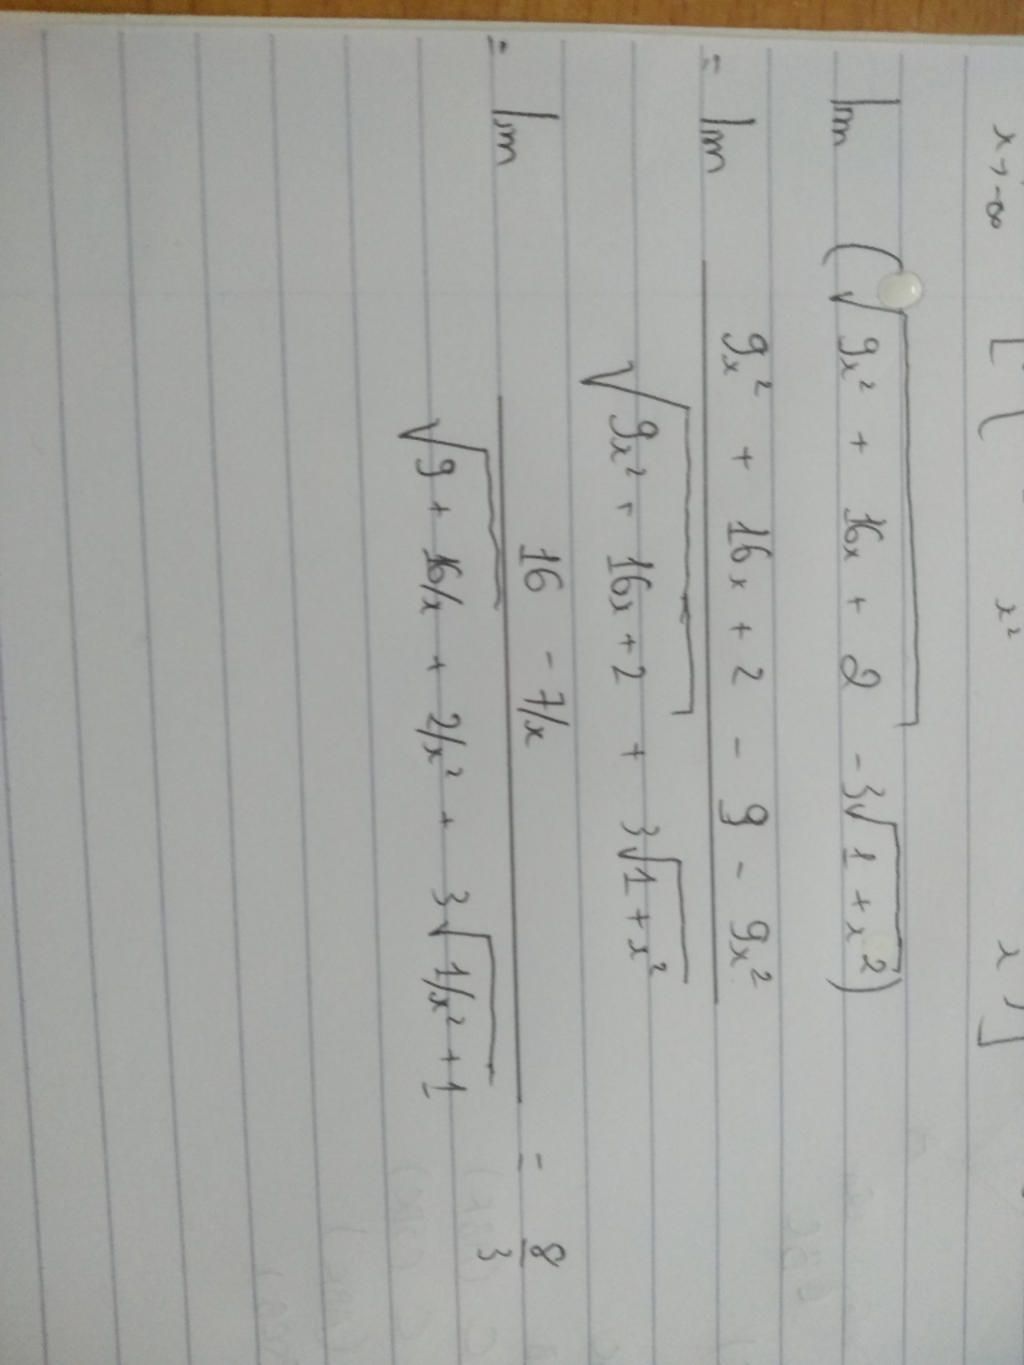 x → -∞ [ ( x² x ) ]
lim (√(9x² + 16x + 2) - 3√(1 + x²))
= lim (9x² + 16x + 2 - 9 - 9x²) / (√(9x² + 16x + 2) + 3√(1 + x²))
= lim (16 - 7/x) / (√(9 + 16/x + 2/x² + 3√(1/x² + 1)) = 8/3